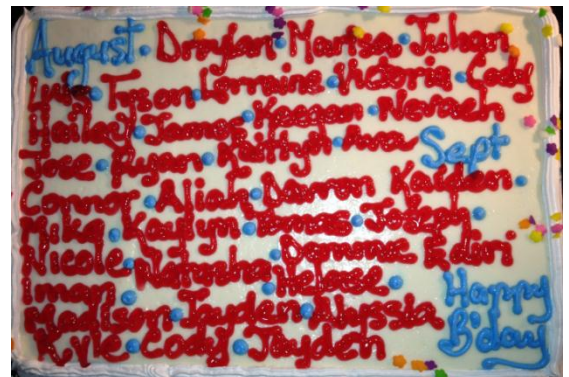 August · Draylen · Marisa · Julian
Luis · Tyson · Lorraine · Victoria · Cody
Hailey · James · Keegan · Nevaeh
Jose · Ryan · Kaitlyn · Ava Sept
Connor · Aliah · Damon Kaiden ·
Mike · Kaitlyn · Tomas · Joseph ·
Nicole · Natasha · Dominic Edivi
Iman · Heloise ·
Madison · Jayden · Alyssia Happy
Kyle · Cody · Jayden B'day